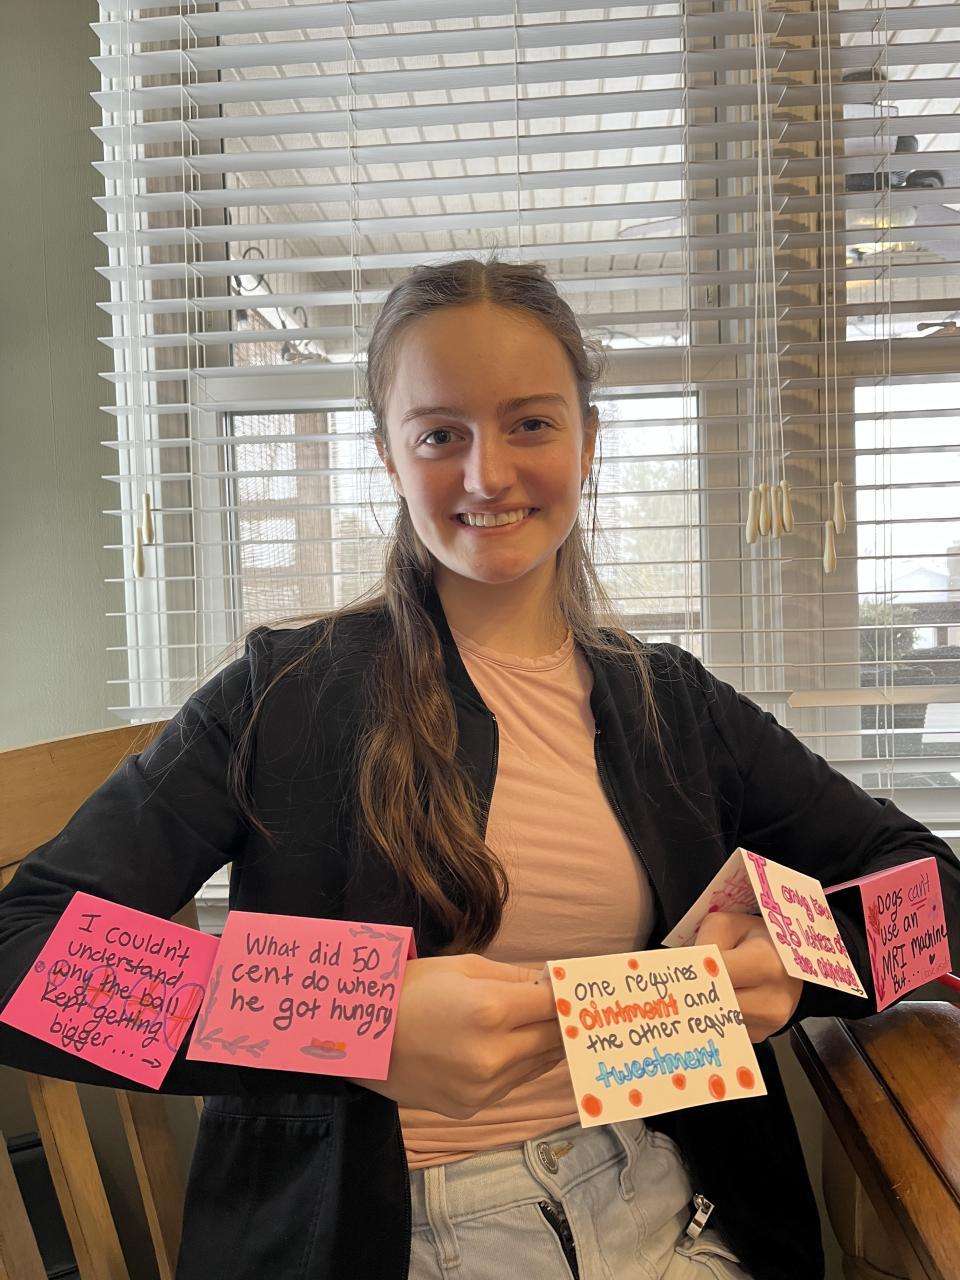 I couldn't
understand
why the ball
kept getting
bigger....→
What did 50
cent do when
he got hungry
one requires
ointment and
the other requires
tweetment
I
only know
25 letters of
the alphabet
Dogs can't
use an
MRI machine
But...